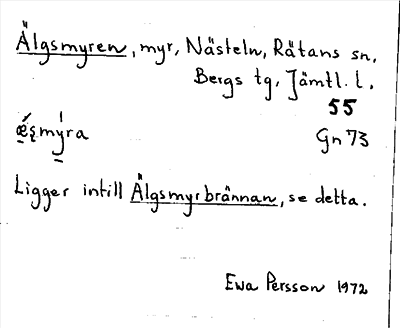 Älgsmyren, myr, Nästeln, Rätans sn,
Bergs tg, Jämtl. l.
55
Gn 73
Ligger intill Älgsmyrbrännan, se detta.
Ewa Persson 1972